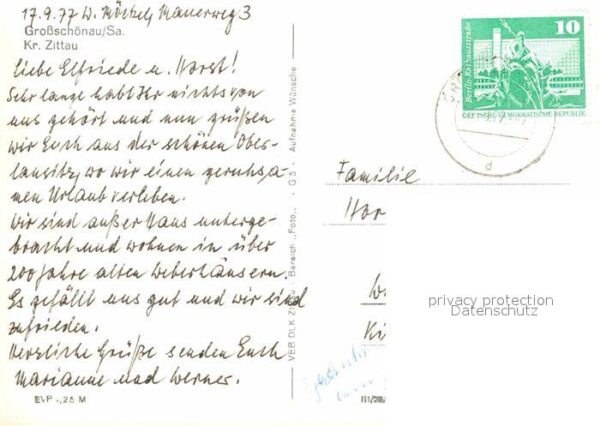 17.9.77 W. Möschel, Mauerweg 3
Großschönau/Sa.
Kr. Zittau
Liebe Elfriede u. Horst!
Sehr lange habt Ihr nichts von
uns gehört und nun grüßen
wir Euch aus der schönen Ober-
lausitz, wo wir einen geruhsa-
men Urlaub verleben.
Wir sind außer Haus unterge-
bracht und wohnen in über
200 Jahre alten Weberhäusern.
Es gefällt uns gut und wir sind
zufrieden.
Herzliche Grüße senden Euch
Marianne und Werner.
EVP -,25 M
VEB DLK Bereich „Foto„ · G 5 · Aufnahme Wünsche
10
DEUTSCHE DEMOKRATISCHE REPUBLIK
d
Familie
Hor
Ki
privacy protection
Datenschutz